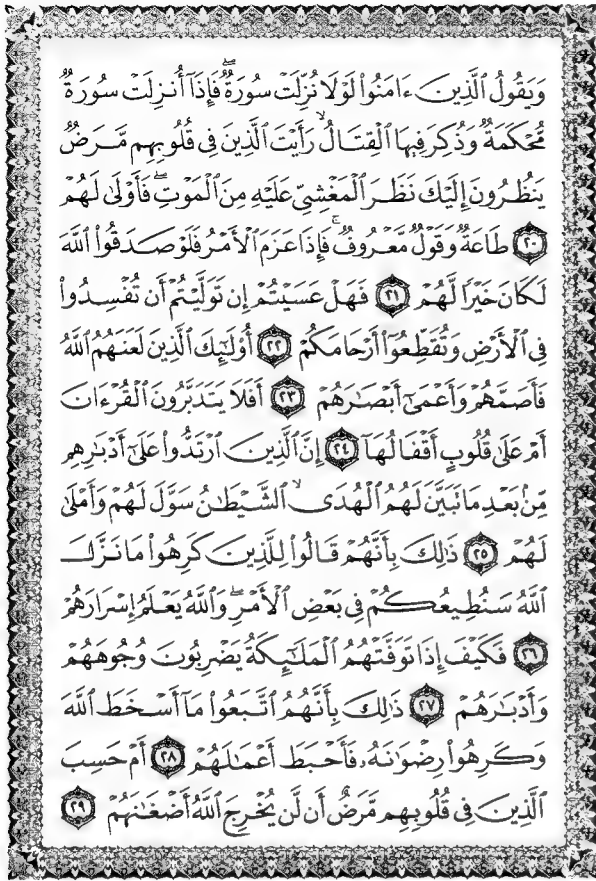 وَيَقُولُ ٱلَّذِينَ ءَامَنُوا۟ لَوْلَا نُزِّلَتْ سُورَةٌۖ فَإِذَآ أُنزِلَتْ سُورَةٌ
مُّحْكَمَةٌ وَذُكِرَ فِيهَا ٱلْقِتَالُۙ رَأَيْتَ ٱلَّذِينَ فِى قُلُوبِهِم مَّرَضٌ
يَنظُرُونَ إِلَيْكَ نَظَرَ ٱلْمَغْشِىِّ عَلَيْهِ مِنَ ٱلْمَوْتِۖ فَأَوْلَىٰ لَهُمْ
٢٠ طَاعَةٌ وَقَوْلٌ مَّعْرُوفٌۚ فَإِذَا عَزَمَ ٱلْأَمْرُ فَلَوْ صَدَقُوا۟ ٱللَّهَ
لَكَانَ خَيْرًا لَّهُمْ ٢١ فَهَلْ عَسَيْتُمْ إِن تَوَلَّيْتُمْ أَن تُفْسِدُوا۟
فِى ٱلْأَرْضِ وَتُقَطِّعُوٓا۟ أَرْحَامَكُمْ ٢٢ أُو۟لَٰٓئِكَ ٱلَّذِينَ لَعَنَهُمُ ٱللَّهُ
فَأَصَمَّهُمْ وَأَعْمَىٰٓ أَبْصَٰرَهُمْ ٢٣ أَفَلَا يَتَدَبَّرُونَ ٱلْقُرْءَانَ
أَمْ عَلَىٰ قُلُوبٍ أَقْفَالُهَآ ٢٤ إِنَّ ٱلَّذِينَ ٱرْتَدُّوا۟ عَلَىٰٓ أَدْبَٰرِهِم
مِّنۢ بَعْدِ مَا تَبَيَّنَ لَهُمُ ٱلْهُدَىۙ ٱلشَّيْطَٰنُ سَوَّلَ لَهُمْ وَأَمْلَىٰ
لَهُمْ ٢٥ ذَٰلِكَ بِأَنَّهُمْ قَالُوا۟ لِلَّذِينَ كَرِهُوا۟ مَا نَزَّلَ
ٱللَّهُ سَنُطِيعُكُمْ فِى بَعْضِ ٱلْأَمْرِۖ وَٱللَّهُ يَعْلَمُ إِسْرَارَهُمْ
٢٦ فَكَيْفَ إِذَا تَوَفَّتْهُمُ ٱلْمَلَٰٓئِكَةُ يَضْرِبُونَ وُجُوهَهُمْ
وَأَدْبَٰرَهُمْ ٢٧ ذَٰلِكَ بِأَنَّهُمُ ٱتَّبَعُوا۟ مَآ أَسْخَطَ ٱللَّهَ
وَكَرِهُوا۟ رِضْوَٰنَهُۥ فَأَحْبَطَ أَعْمَٰلَهُمْ ٢٨ أَمْ حَسِبَ
ٱلَّذِينَ فِى قُلُوبِهِم مَّرَضٌ أَن لَّن يُخْرِجَ ٱللَّهُ أَضْغَٰنَهُمْ ٢٩